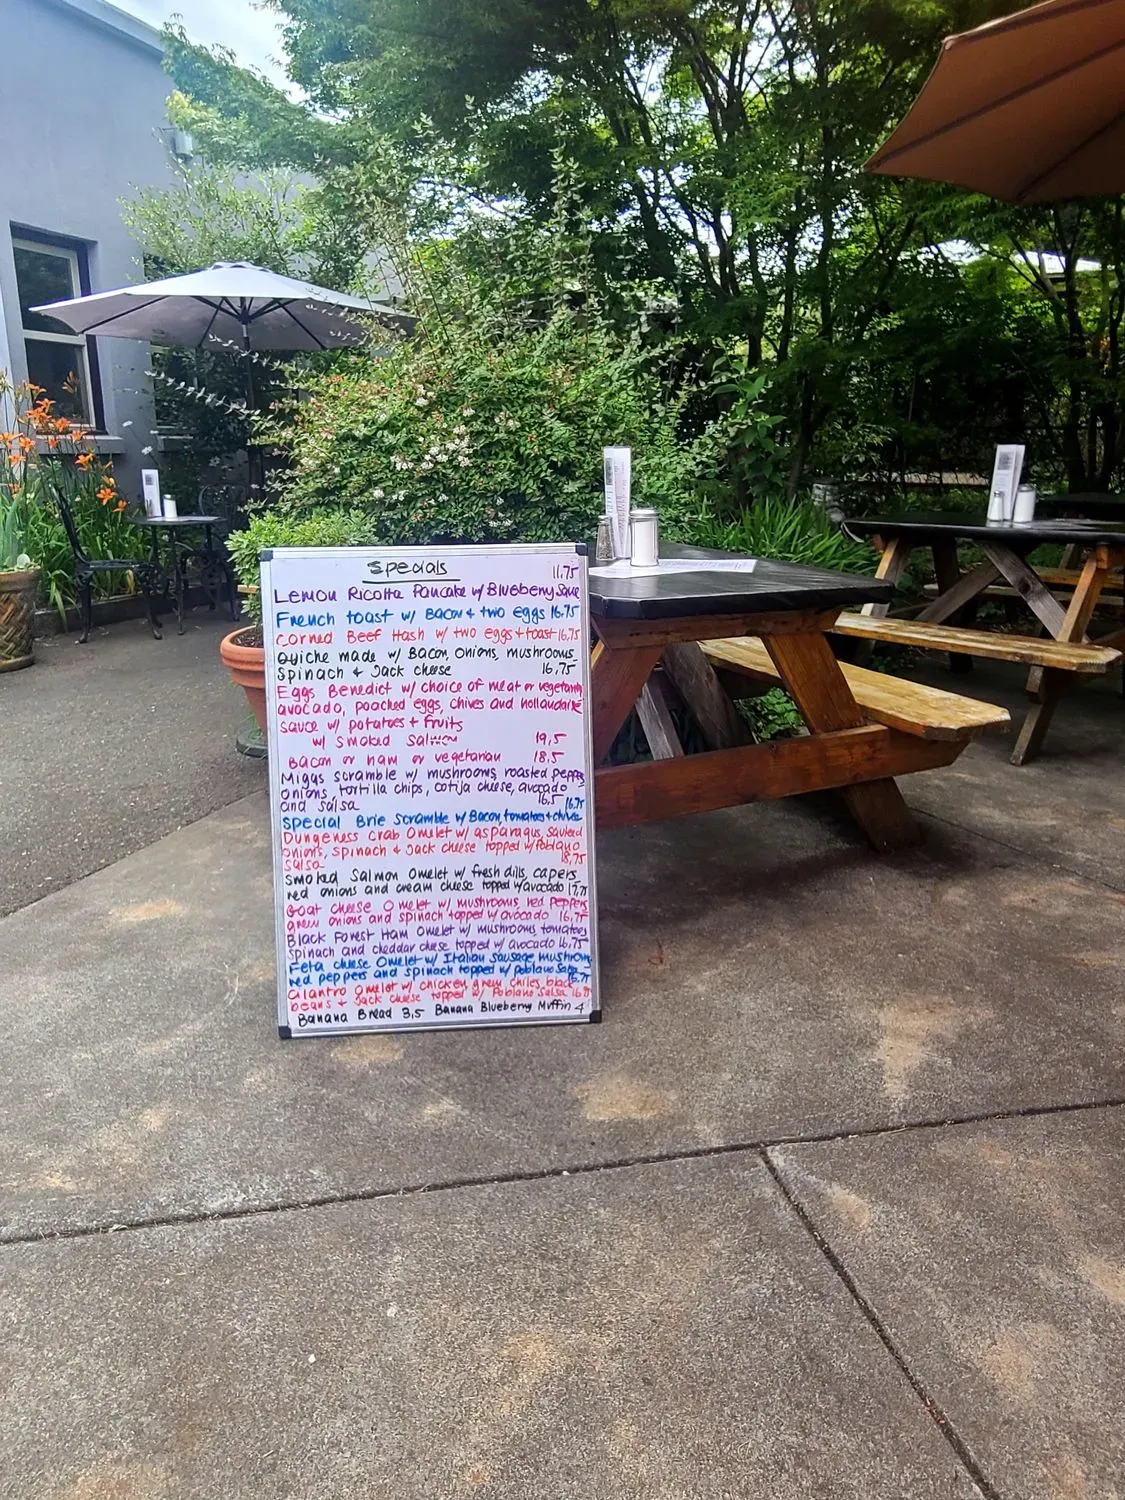 Specials
11.75
Lemon Ricotta Pancake w/ Blueberry Sauce
French toast w/ Bacon + two eggs 16.75
Corned Beef Hash w/ two eggs + toast 16.75
Quiche made w/ Bacon, Onions, mushrooms
Spinach + Jack cheese 16.75
Eggs Benedict w/ choice of meat or vegetarian
avocado, poached eggs, chives and hollandaise
sauce w/ potatoes + fruits
w/ Smoked Salmon 19,5
Bacon or ham or vegetarian 18,5
Migas scramble w/ mushrooms, roasted peppers
onions, tortilla chips, cotija cheese, avocado
and salsa 16,5
16.75
Special Brie Scramble w/ Bacon, tomatoes + chives
Dungeness Crab Omelet w/ asparagus, sauteed
onions, spinach & Jack cheese topped w/ Poblano
salsa 18,75
Smoked Salmon Omelet w/ fresh dills, capers
red onions and cream cheese topped w/ avocado 17,75
Goat cheese Omelet w/ mushrooms, red peppers
green onions and spinach topped w/ avocado 16,75
Black Forest Ham Omelet w/ mushrooms, tomatoes
spinach and cheddar cheese topped w/ avocado 16,75
Feta cheese Omelet w/ Italian Sausage, mushrooms
red peppers and spinach topped w/ poblano salsa 16.75
Cilantro Omelet w/ chicken, green chiles, black
beans + Jack cheese topped w/ Poblano Salsa 16.75
Banana Bread 3,5 Banana Blueberry Muffin 4